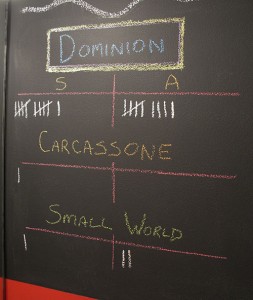 DOMINION
S A
CARCASSONE
SMALL WORLD